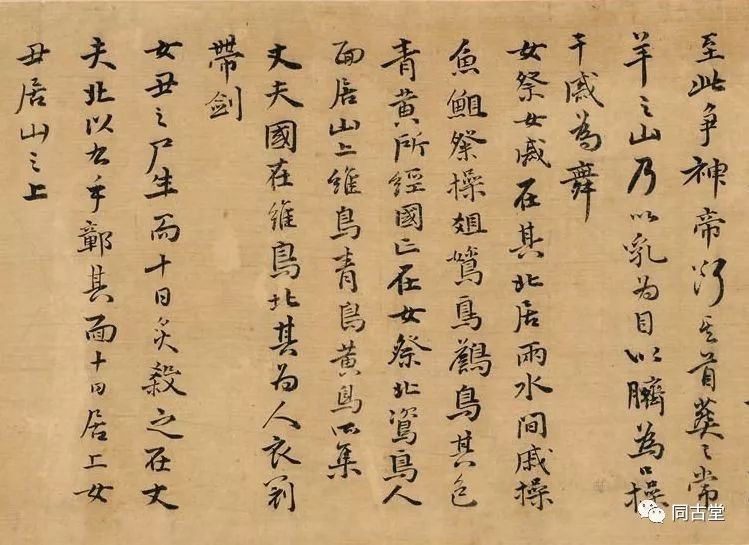 至此争神帝断其首葬之常
羊之山乃以乳為目以臍為口操
干戚為舞
女祭女戚在其北居兩水間戚操
魚䱉祭操俎鳥鳥其色
青黄所經國亡在女祭北鳥人
面居山上維鳥青鳥黄鳥所集
丈夫國在維鳥北其為人衣冠
帶劍
女丑之尸生而十日炙殺之在丈
夫北以右手鄣其面十日居上女
丑居山之上
同古堂